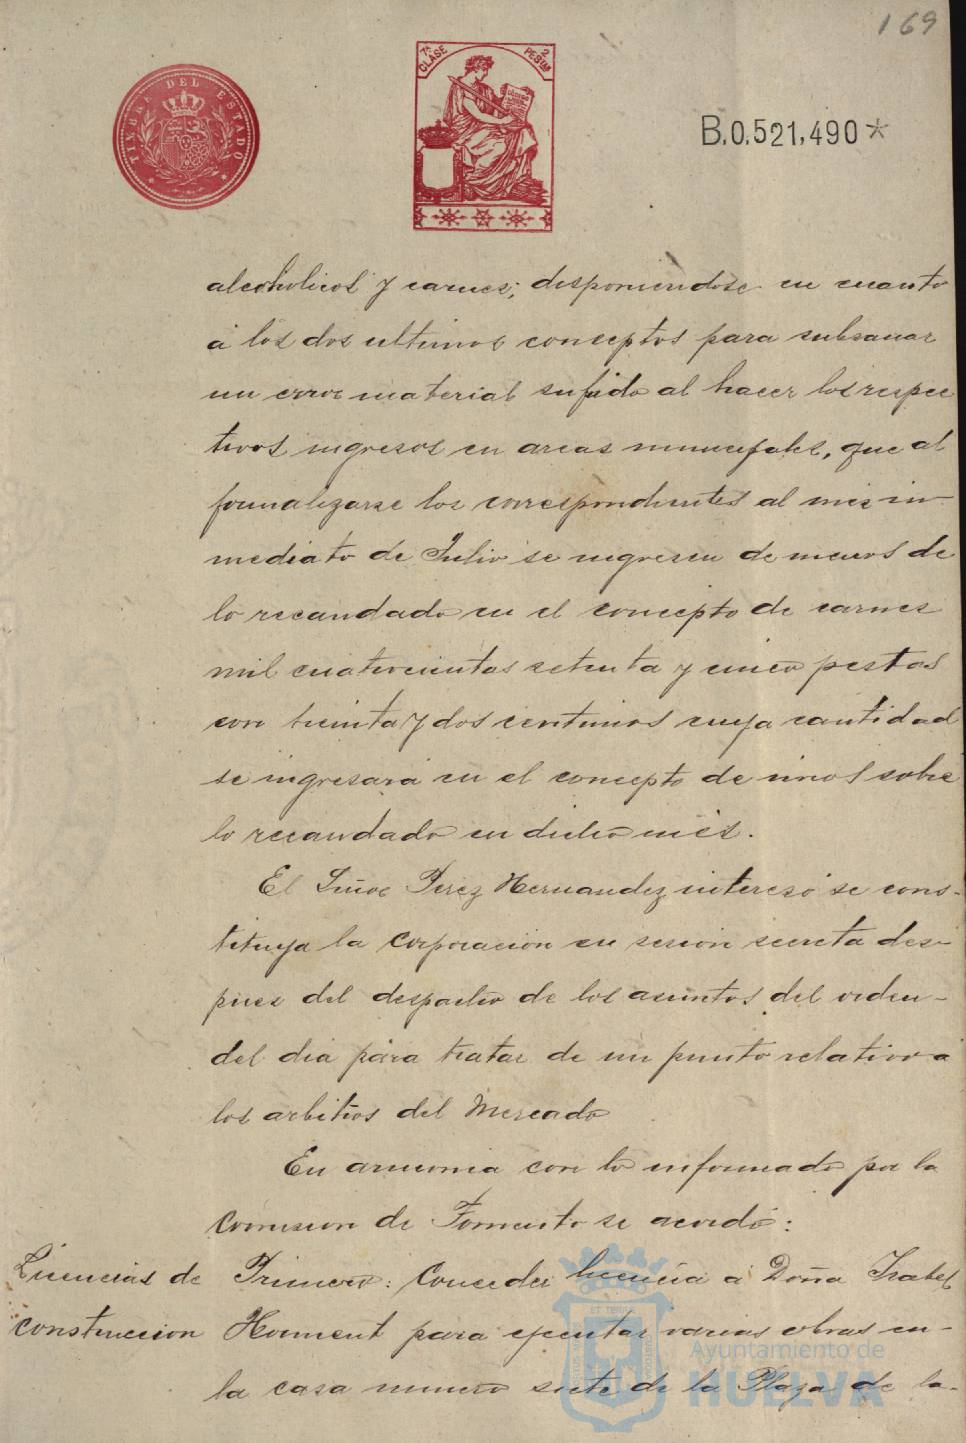 169
TIMBRE DEL ESTADO
7ª CLASE 2 PESETAS
B.0.521,490*
alcoholicos y carnes; disponiendose en cuanto
á los dos ultimos conceptos para subsanar
un error material sufrido al hacer los respec
tivos ingresos en arcas municipales, que al
formalizarse los correspondientes al mes in-
mediato de Julio se ingresen de menos de
lo recaudado en el concepto de carnes
mil cuatrocientas setenta y cinco pestas
con treinta y dos centimos cuya cantidad
se ingresará en el concepto de vinos sobre
lo recaudado en dicho mes.
El Señor Perez Hernandez interesó se cons-
tituya la Corporacion en sesion secreta des-
pues del despacho de los asuntos del orden-
del dia para tratar de un punto relativo a
los arbitrios del Mercado
En armonia con lo informado por la
Comision de Fomento se acordó:
Licencias de
construccion
Primero: Conceder licencia á Doña Isabel
Homent para ejecutar varias obras en-
la casa numero siete de la Plaza de la-
Ayuntamiento de
HUELVA